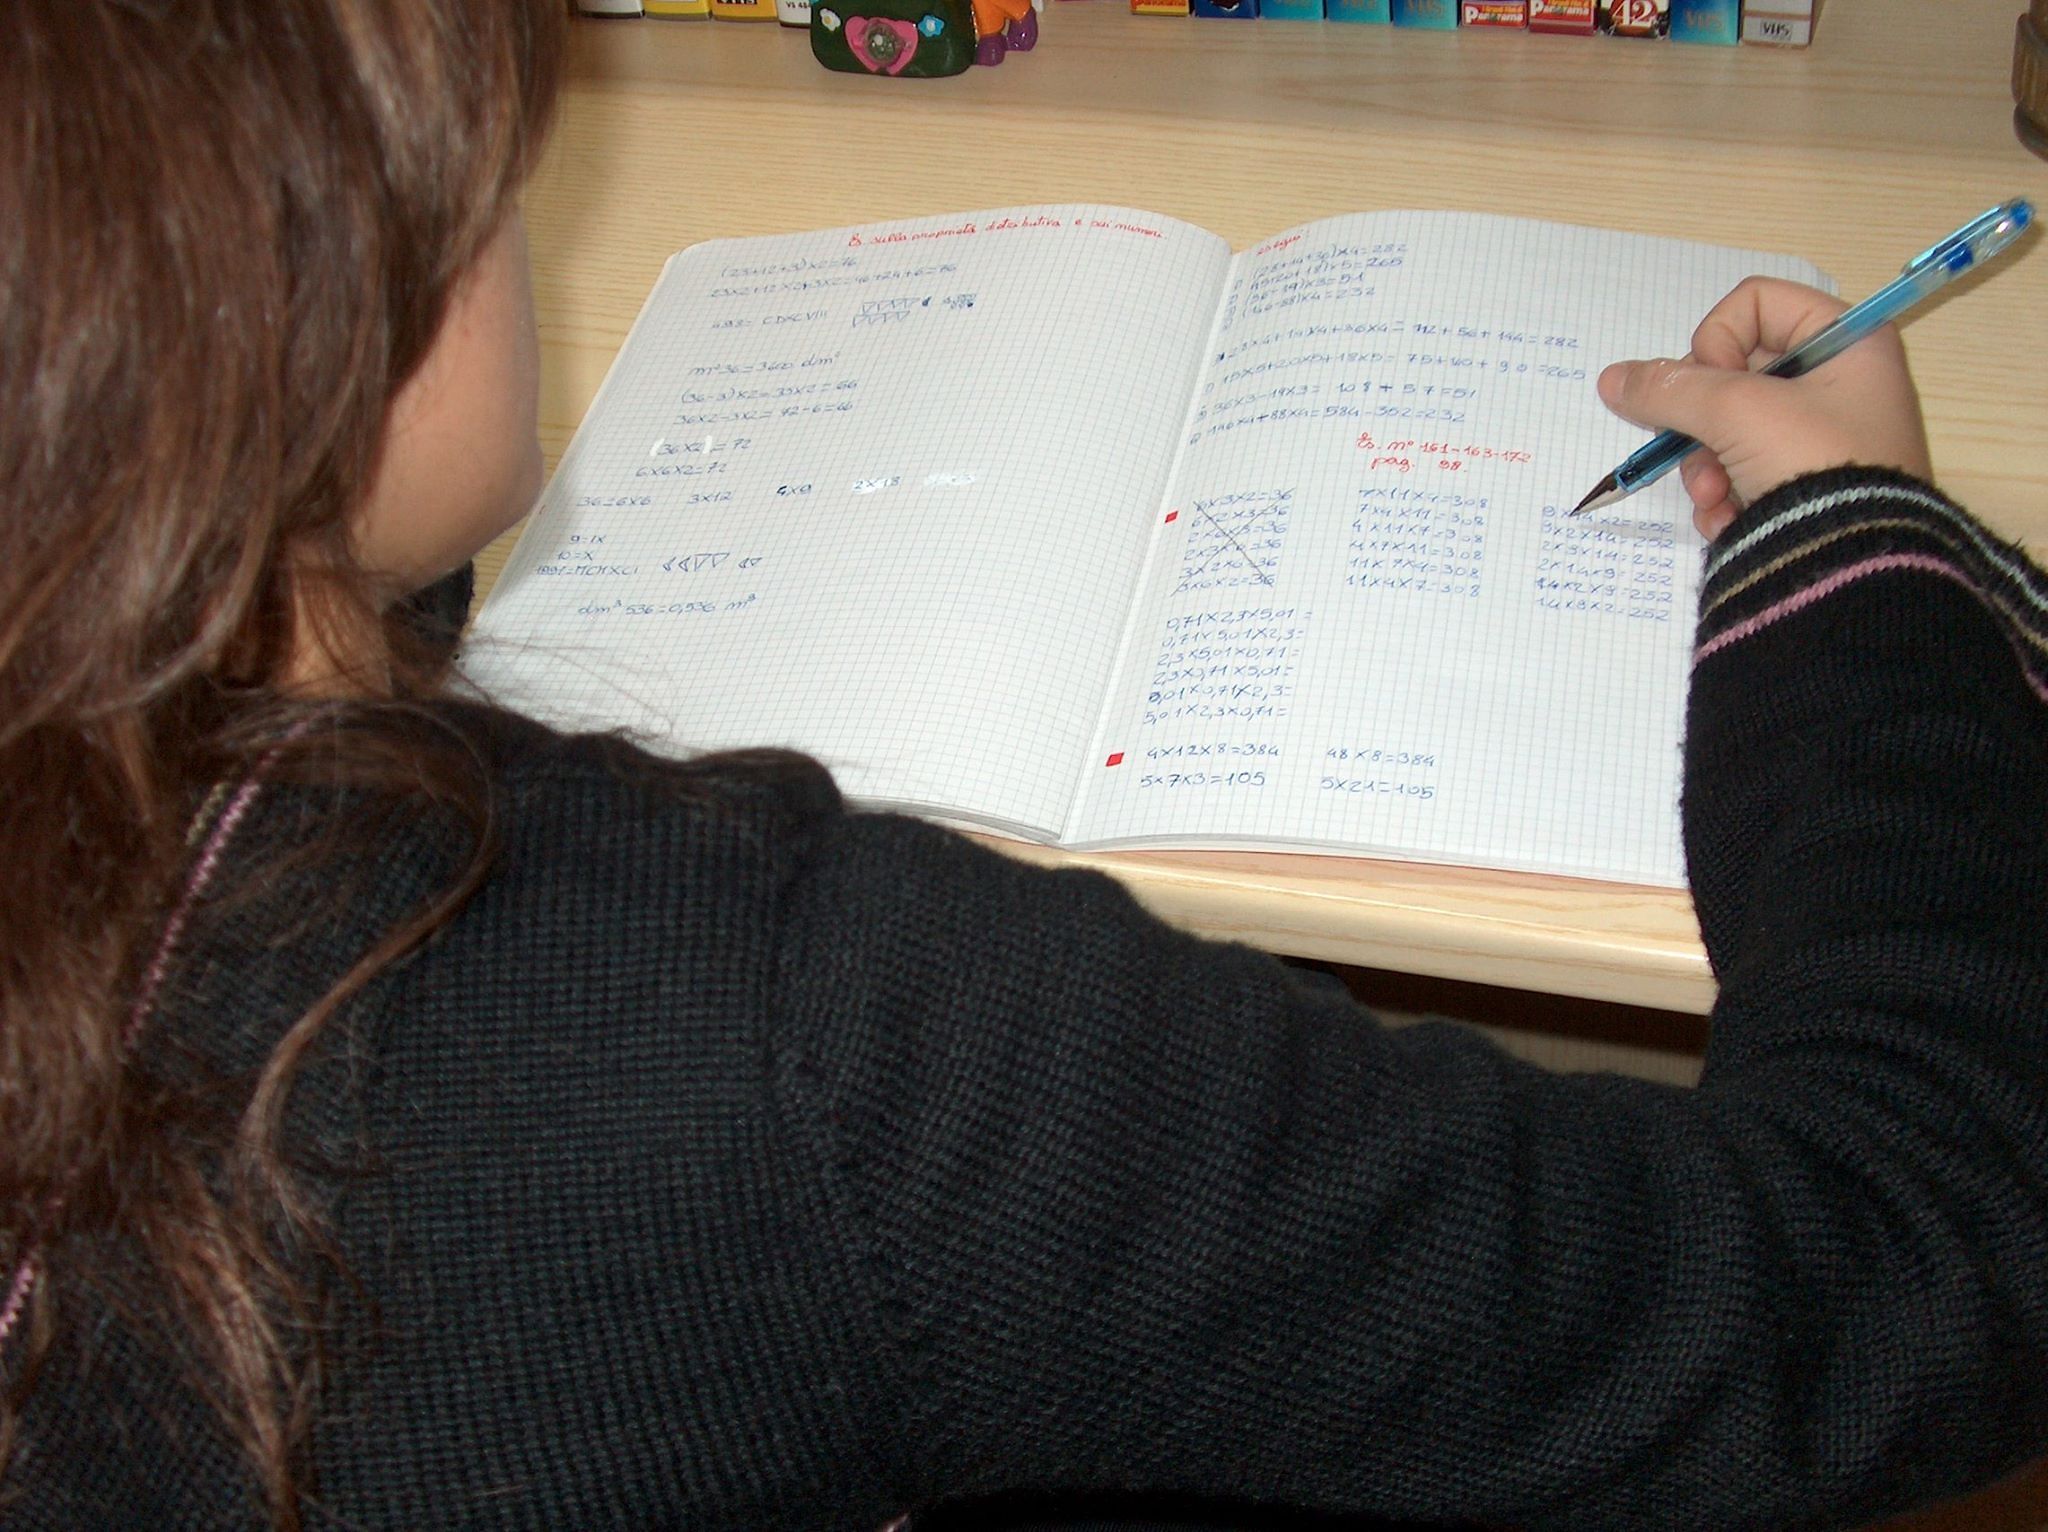 VHS
VS 484
Panorama
VHS
VHS
Panorama
Panorama
42
VHS
VHS
Es. sulla proprietà distributiva e sui numeri.
(23+12+3)×2=76
23×2+12×2+3×2=46+24+6=76
498= CDXCVIII
m² 36=3600 dm²
(36-3)×2=33×2=66
36×2-3×2=72-6=66
(36×2)=72
6×6×2=72
36=6×6 3×12 4×9 2×18
9=IX
10=X
1991=MCMXCI
dm³ 536=0,536 m³
esegui:
)×4=282
)×5=265
)×3=51
)×4=232
36×4= 112+56+144=282
15×5+20×5+18×5= 75+100+90=265
36×3-19×3= 108+57=51
146×4+88×4=584-352=232
Es. n° 161-163-172
pag. 98.
6×3×2=36
6×2×3=36
2×6×3=36
2×3×6=36
3×2×6=36
3×6×2=36
7×11×4=308
7×4×11=308
4×11×7=308
4×7×11=308
11×7×4=308
11×4×7=308
9×14×2=252
9×2×14=252
2×9×14=252
2×14×9=252
14×2×9=252
14×9×2=252
0,71×2,3×5,01=
0,71×5,01×2,3=
2,3×5,01×0,71=
2,3×0,71×5,01=
5,01×0,71×2,3=
5,01×2,3×0,71=
4×12×8=384 48×8=384
5×7×3=105 5×21=105